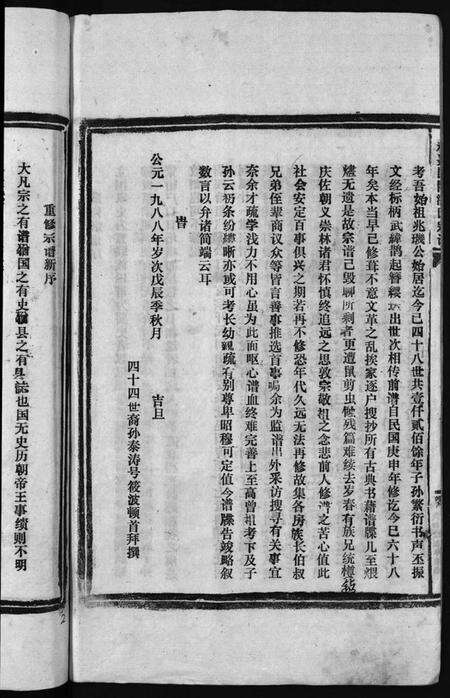 考吾始祖兆璣公始居迄今已四十八世共壹仟贰佰馀年子孙繁衍书声丕振
文经标柄武纬鹊起簪缨 出世次相传前谱自民国庚申年修迄今已六十八
年矣本当早已修葺不意文革之乱挨家逐户搜抄所有古典书藉谱牒几至煨
烬无遗是故宗谱已毁聊所剩者更遭鼠剪虫蚀残篇难续去岁春有族兄统
庆佐朝义崇林诸君怀慎终追远之思敦宗敬祖之念悲前人修谱之苦心值此
社会安定百事俱兴之期若再不修恐年代久远无法再修故集各房族长伯叔
兄弟侄辈商议众等皆言善事推选首事嘱余为监谱出外采访搜寻有关事宜
奈余才疏学浅力不用心虽为此而呕心谱血终难完善上至高曾祖考下及子
孙云礽条纷缕晰亦或可考长幼亲疏有别尊卑昭穆可定值今谱牒告竣略叙
数言以弁诸简端云耳
旹
公元一九八八年岁次戊辰季秋月 吉旦
四十四世裔孙泰涛号筱波顿首拜撰
重修宗谱新序
大凡宗之有谱犹国之有史犹县之有县誌也国无史历朝帝王事绩则不明